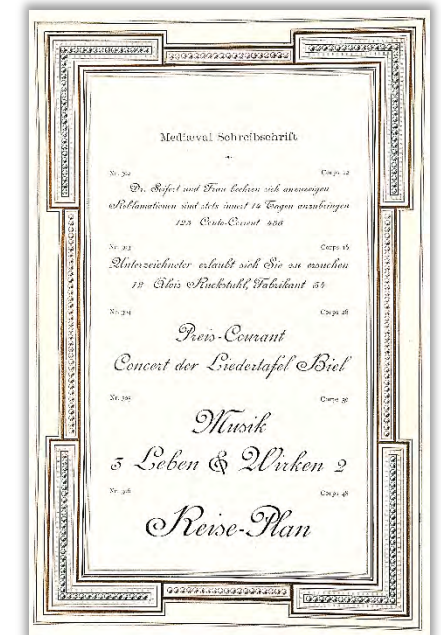 Mediæval Schreibschrift
Nr. 302 Corps 12
Dr. Seifert und Frau beehren sich anzuzeigen
Reklamationen sind stets innert 14 Tagen anzubringen
123 Conto-Corrent 456
Nr. 303 Corps 16
Unterzeichneter erlaubt sich Sie zu ersuchen
12 Alois Ruckstuhl, Fabrikant 54
Nr. 304 Corps 26
Preis-Courant
Concert der Liedertafel Biel
Nr. 305 Corps 36
Musik
3 Leben & Wirken 2
Nr. 306 Corps 48
Reise-Plan